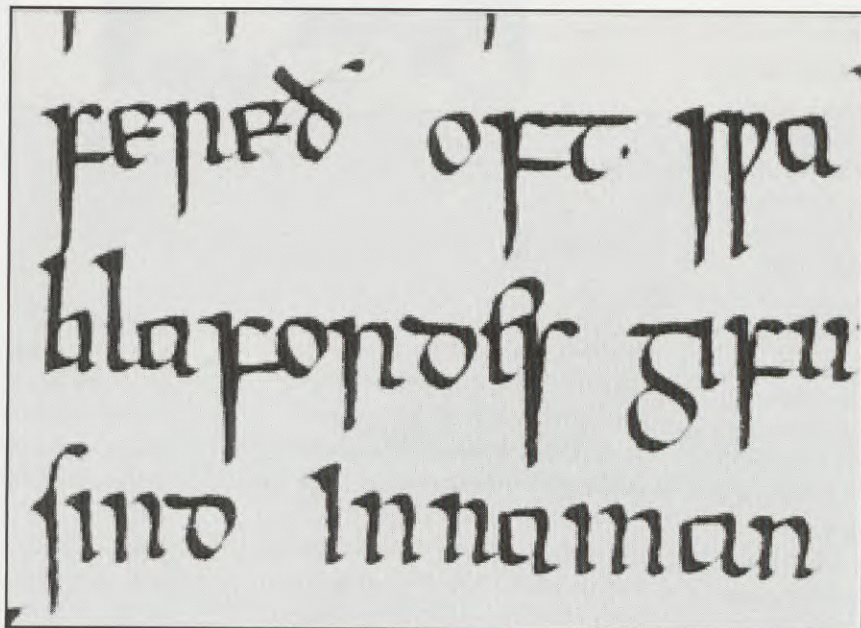 fereð oft· sƿa
hlafordes gifu
sind Innaman